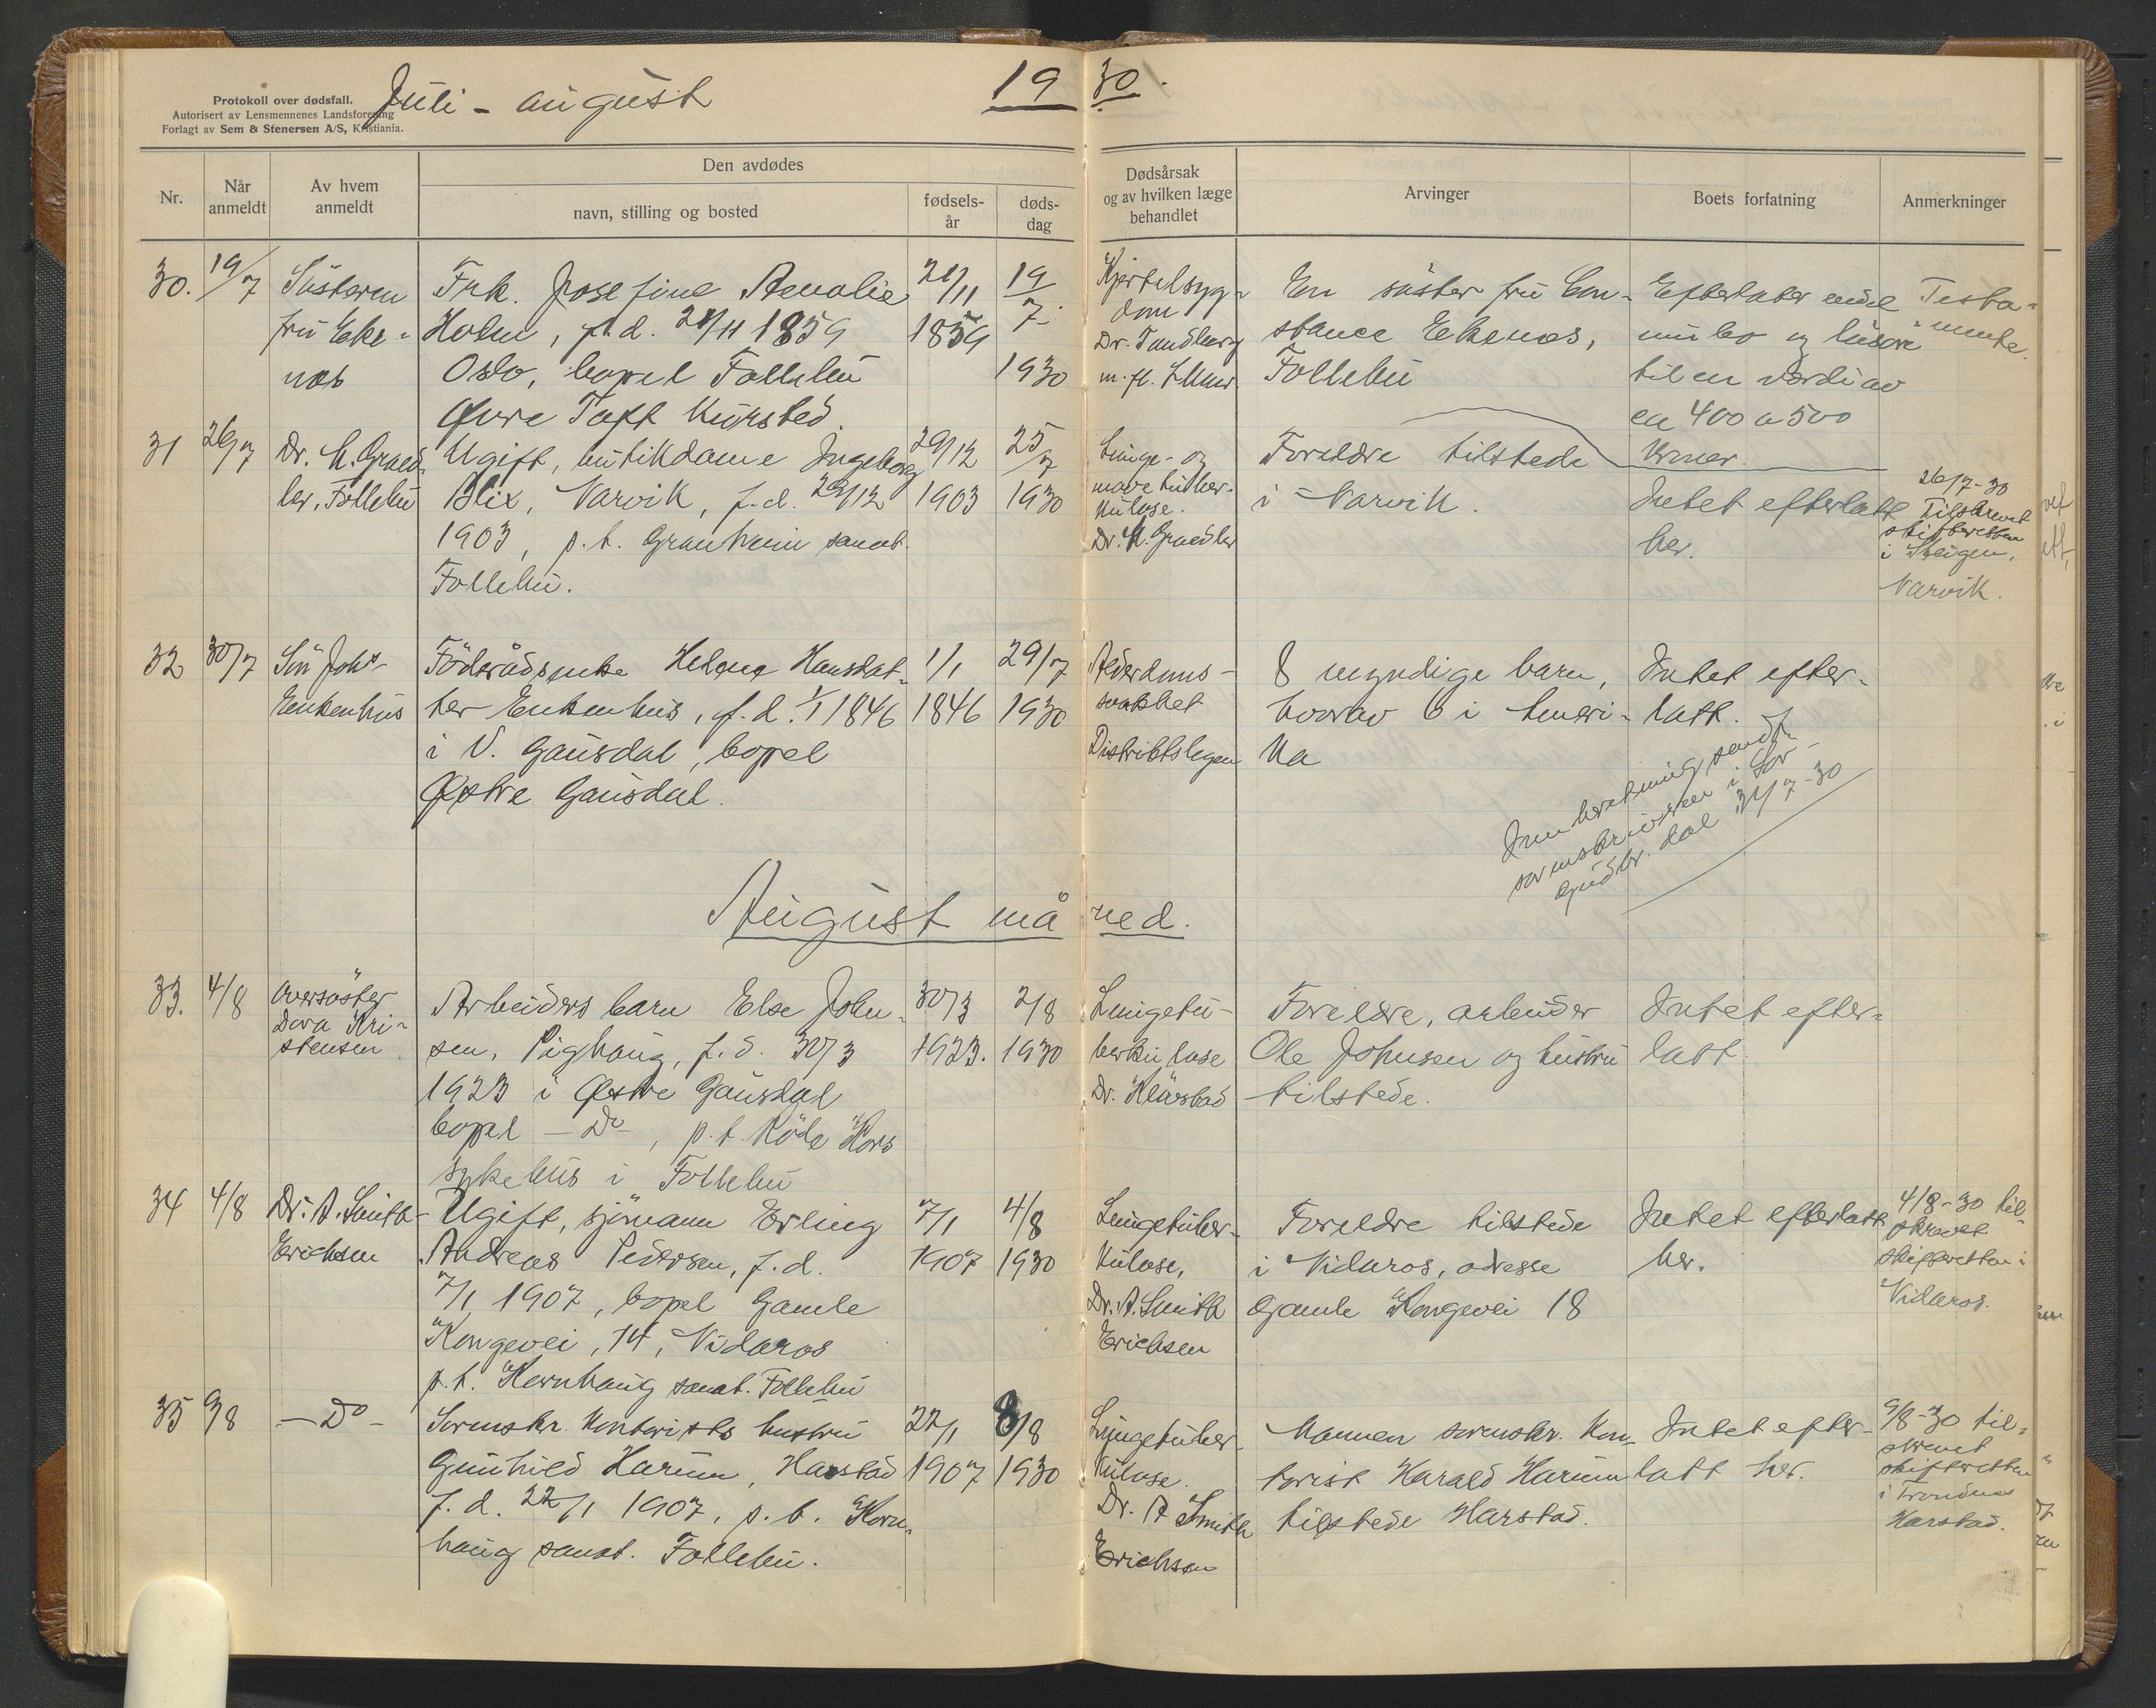 Juli - august
19 30.
Protokoll over dødsfall.
Autorisert av Lensmennenes Landsforening
Forlagt av Sem & Stenersen A/S, Kristiania.
Nr.
Når anmeldt
Av hvem anmeldt
Den avdødes
navn, stilling og bosted
fødsels-år
døds-dag
Dødsårsak og av hvilken læge behandlet
Arvinger
Boets forfatning
Anmerkninger
30.
19/7
Søsteren
fru Eke-
næs
Frk. Josefine Amalie
Holm, f. d. 21/11 1859
Oslo, bopel Follebu
Øvre Toft Kursted.
21/11
1859
19/7
1930
Kjertelsyg-
dom
Dr. Tandberg
m. fl. Lhmr.
En søster fru Con-
stance Ekenæs,
Follebu
Efterlater endel
innbo og løsøre
til en værdi av
ca 400 a 500
kroner.
Testa-
mente.
31
26/7
Dr. M. Græd-
ler, Follebu
Ugift, butikdame Ingeborg
Blix, Narvik, f. d. 29/12
1903, p. t. Granheim sanat.
Follebu.
29/12
1903
25/7
1930
Lunge- og
mave tuber-
kulose.
Dr. M. Grædler
Foreldre tilstede
i Narvik.
Intet efterlatt
her.
26/7-30
Tilskrevet
skifteretten
i Steigen,
Narvik.
32
30/7
Søn Johs
Enkenhus
Föderådsenke Helene Hansdat-
ter Enkenhus, f. d. 1/1 1846
i V. Gausdal, bopel
Østre Gausdal.
1/1
1846
29/7
1930
Alderdoms-
svakhet
Distriktslegen
8 myndige barn,
hvorav 6 i Ameri-
ka
Intet efter-
latt.
Innberetning sendt
sorenskriveren i Sør-
Gudbr. dal 31/7-30
August måned.
33.
4/8
Oversøster
Dora Kri-
stensen
Arbeiders barn Else John-
sen, Pighaug, f. d. 30/3
1923 i Østre Gausdal
bopel - Do -, p. t. Röde Kors
sykehus i Follebu
30/3
1923.
2/8
1930
Lungetu-
berkulose
Dr. Klövstad
Foreldre, arbeider
Ole Johnsen og hustru
tilstede.
Intet efter-
latt
34
4/8
Dr. A. Smith-
Erichsen
Ugift, sjømann Erling
Andreas Pedersen, f. d.
7/1 1907, bopel Gamle
Kongevei, 14, Nidaros
p. t. Kornhaug sanat. Follebu
7/1
1907
4/8
1930
Lungetuber-
kulose,
Dr. A. Smith
Erichsen
Foreldre tilstede
i Nidaros, adresse
Gamle Kongevei 18
Intet efterlatt
her.
4/8-30 til-
skrevet
skifteretten i
Nidaros.
35
9/8
- Do -
Sorenskr. kontorists hustru
Gunhild Harum, Harstad
f. d. 22/1 1907, p. t. Korn-
haug sanat. Follebu.
22/1
1907
8/8
1930
Lungetuber-
kulose.
Dr. A Smith
Erichsen
Mannen sorenskr. kon-
torist Harald Harum
tilstede Harstad.
Intet efter-
latt her.
9/8-30 til-
skrevet
skifteretten
i Trondnes
Harstad.